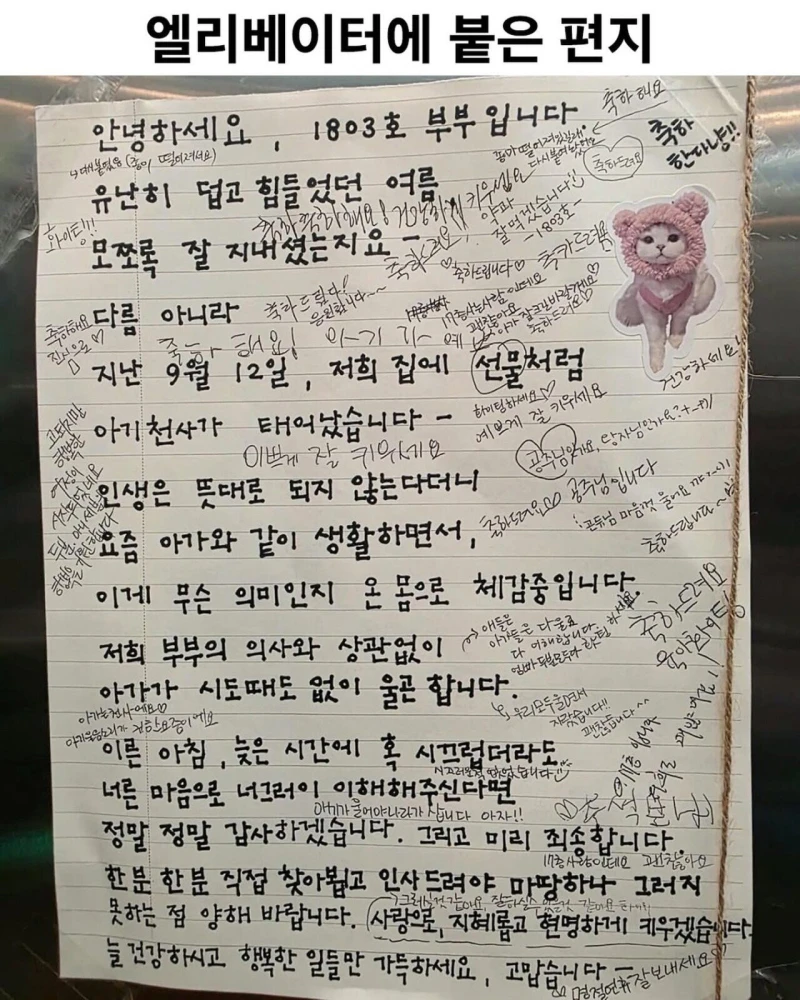 엘리베이터에 붙은 편지
안녕하세요, 1803호 부부입니다
축하해요
축하
한다냥!!
다시붙여놨어요
축하드려요
유난히 덥고 힘들었던 여름
화이팅!!
건강하게 키우세요
약과
잘 먹겠습니다
-1803호-
모쪼록 잘 지내셨는지요-
축하드려요
축하드립니다
다름 아니라
축하드립니다
응원합니다~~
17층사는사람인데요
괜찮아요
축하드려요
축하해요
진심으로
축하해요! 아기가 예
지난 9월 12일, 저희 집에 선물처럼
건강하세요!
아기천사가 태어났습니다-
화이팅하세요
예쁘게 잘 키우세요
이쁘게 잘 키우세요
공주님인가요, 왕자님인가요?
인생은 뜻대로 되지 않는다더니
축하드려요 공주님입니다
공주님 마음껏 울어요
축하드립니다
요즘 아가와 같이 생활하면서,
이게 무슨 의미인지 온 몸으로 체감중입니다
축하드려요
육아화이팅!
저희 부부의 의사와 상관없이
애들은
아가들은 다울죠
다 이해합니다.
아가가 시도때도 없이 울곤 합니다.
아가는천사예요
우리모두울면서
자랐습니다!!
괜찮습니다
이른 아침, 늦은 시간에 혹 시끄럽더라도
너른 마음으로 너그러이 이해해주신다면
아기가울어야나라가 삽니다 아자!!
정말 정말 감사하겠습니다. 그리고 미리 죄송합니다
17층사람인데요 괜찮아요
한분 한분 직접 찾아뵙고 인사드려야 마땅하나 그러지
못하는 점 양해 바랍니다. 사랑으로, 지혜롭고 현명하게 키우겠습니다.
늘 건강하시고 행복한 일들만 가득하세요, 고맙습니다-
명절연휴잘보내세요